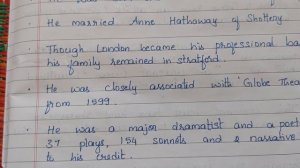 He married Anne Hathaway of Shottery.
Though London became his professional ba
his family remained in stratford.
He was closely associated with 'Globe Thea
from 1599.
He was a major dramatist and a poet
37 plays, 154 sonnets and 2 narrative
to his credit.